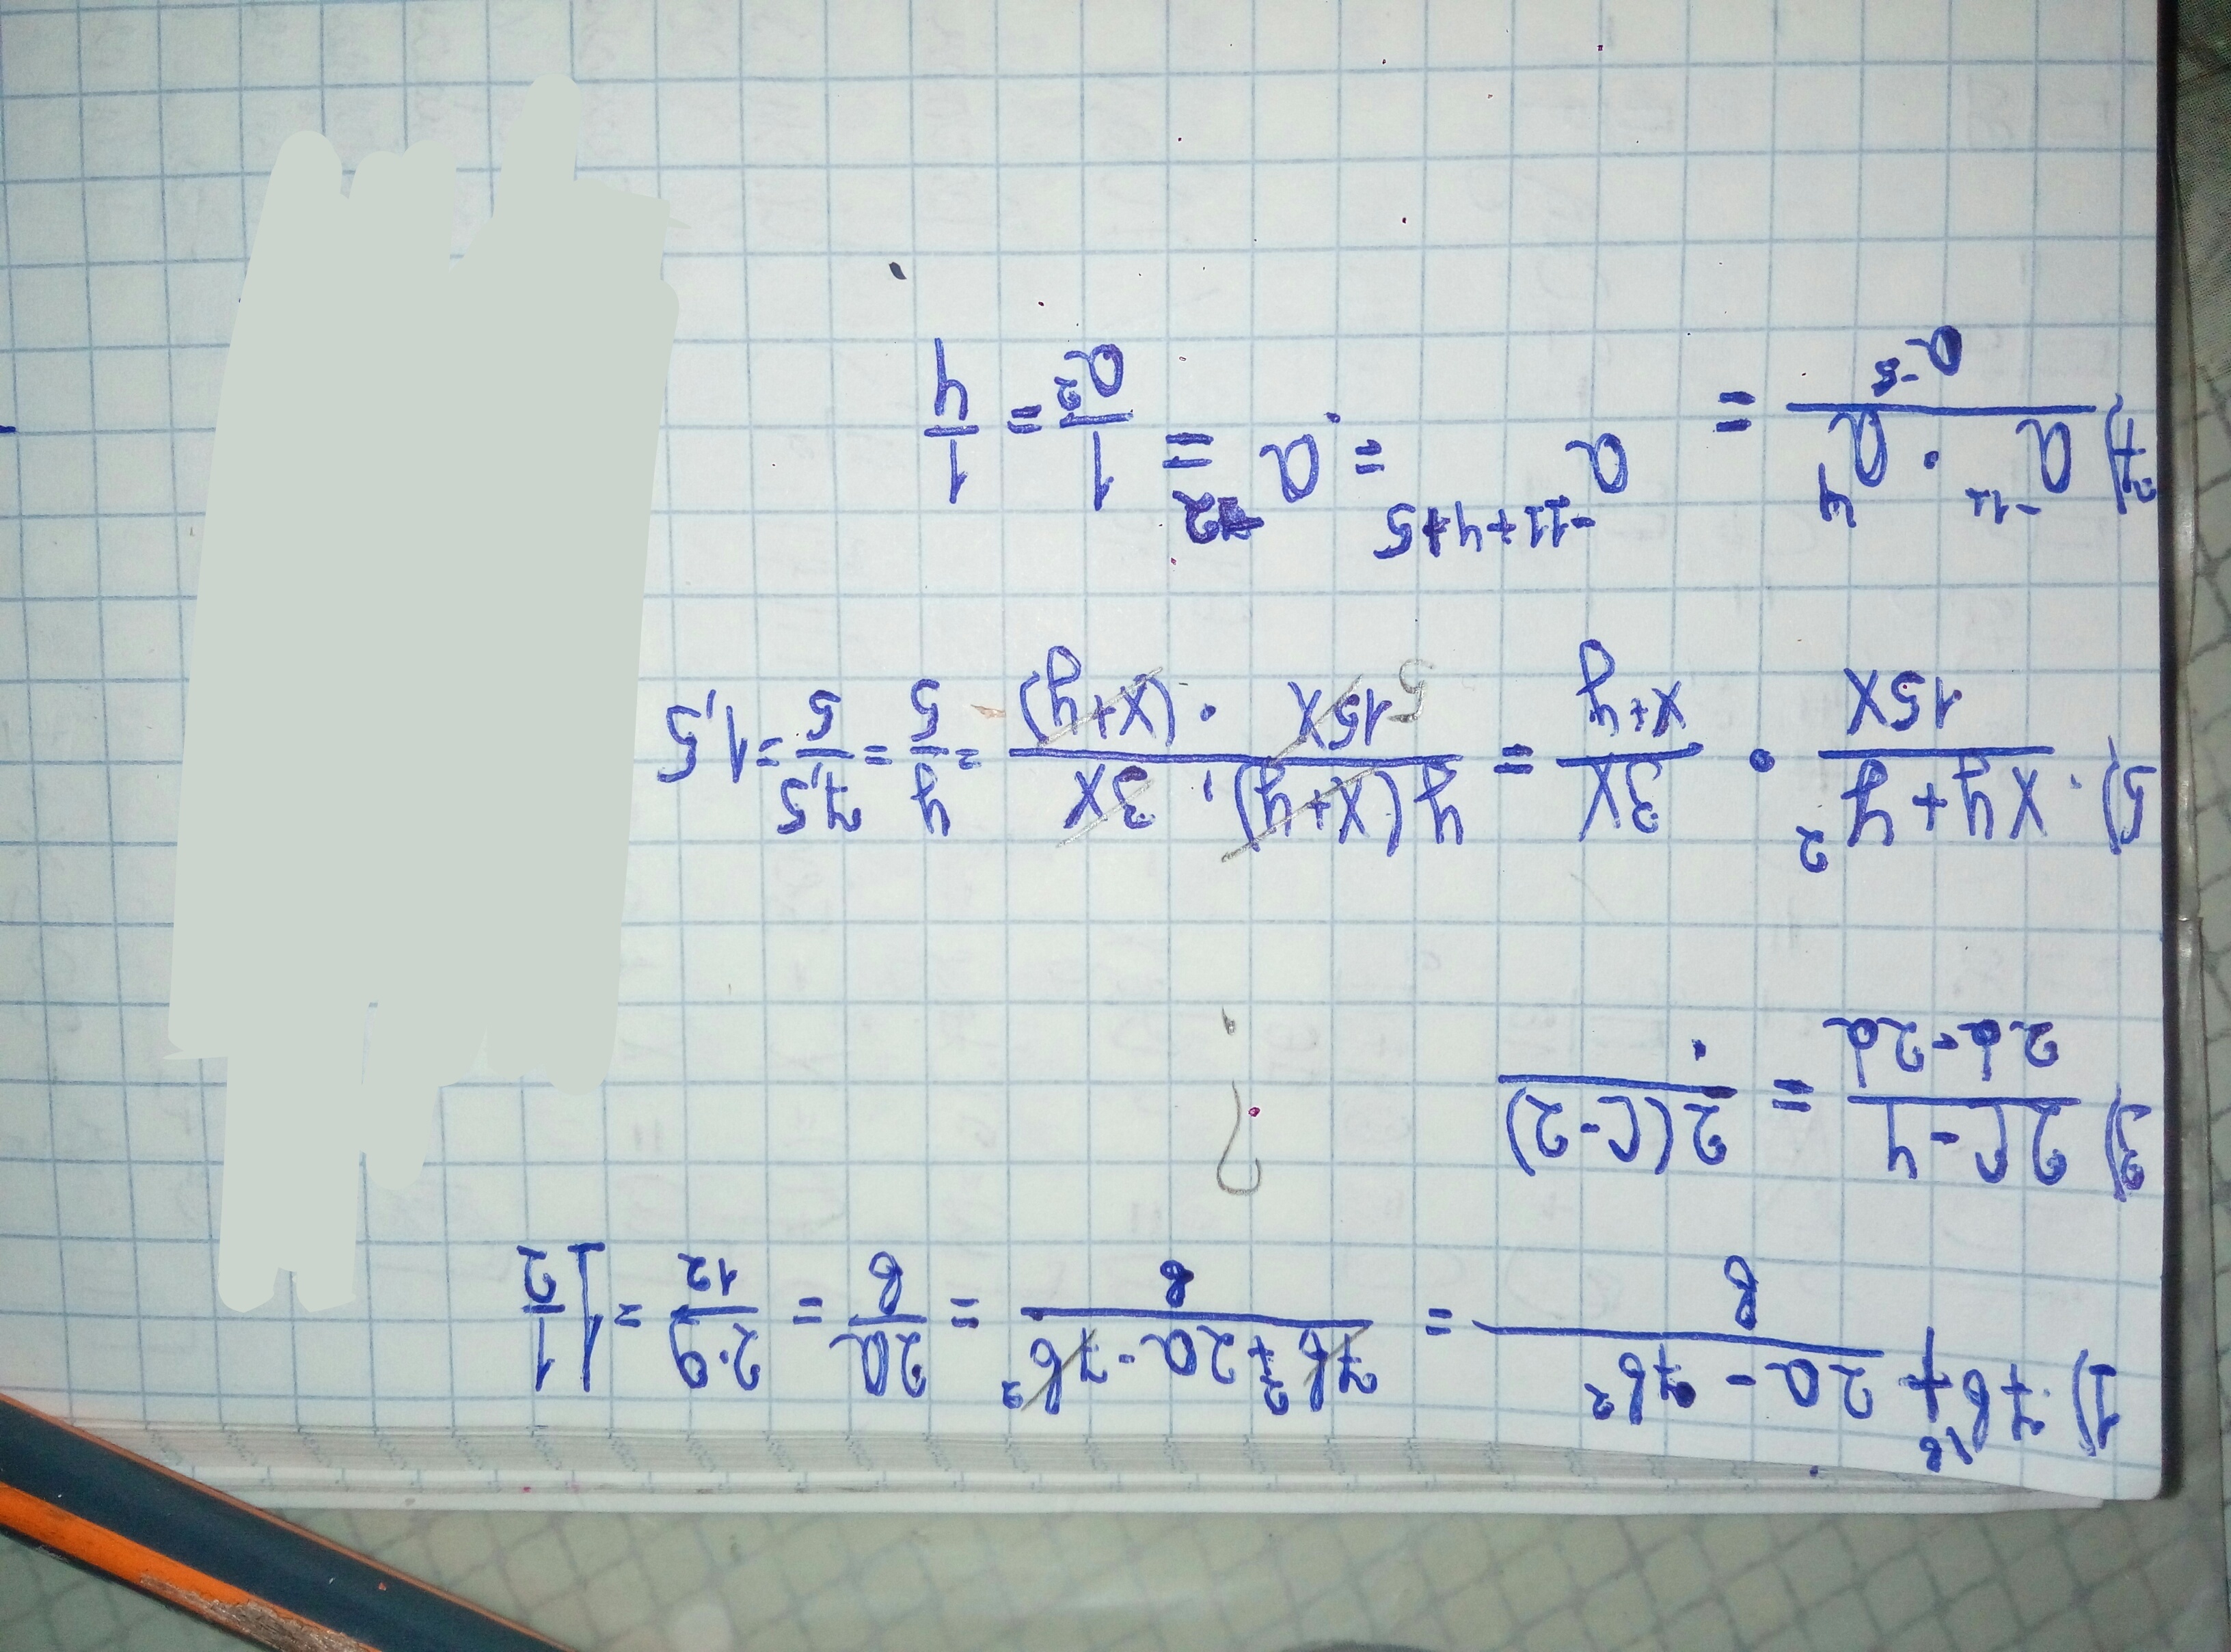 1) 7в^{\в} + (2а - 7в²)/в = (7в² + 2а - 7в²)/в = 2а/в = 2·9/12 = 1 1/2
3) (2c-4)/(2d-2d) = 2(c-2)/ ?
5) (xy+y²)/15x · 3x/(x+y) = y(x+y)·3x/15x·(x+y) 5 = y/5 = 7,5/5 = 1,5
7) a⁻¹¹ · a⁴/a⁻⁵ = a⁻¹¹⁺⁴⁺⁵ = a⁻² = 1/a² = 1/4